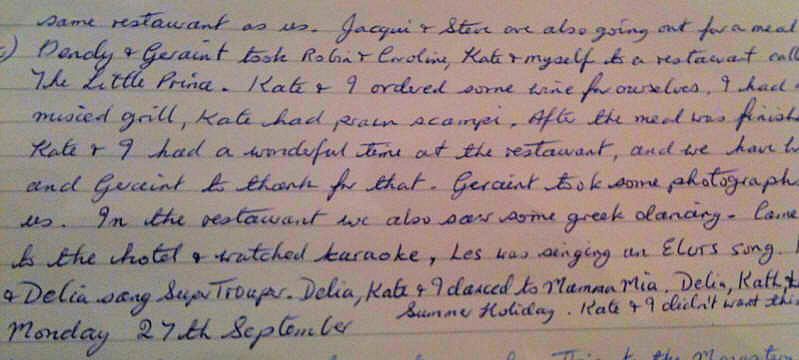 same restaurant as us. Jacqui & Steve are also going out for a meal
Dendy & Geraint took Robin & Caroline, Kate & myself to a restaurant call
The Little Prince. Kate & I ordered some wine for ourselves, I had
musied grill, Kate had prawn scampi. After the meal was finish
Kate & I had a wonderful time at the restaurant, and we have
and Geraint to thank for that. Geraint took some photograph
us. In the restaurant we also saw some greek dancing. Came
to the hotel & watched karaoke, Les was singing an Elvis song.
& Delia sang SuperTrouper. Delia, Kate & I danced to Mamma Mia. Delia, Kath &
Summer Holiday. Kate & I didn't want this
Monday 27th September
to the